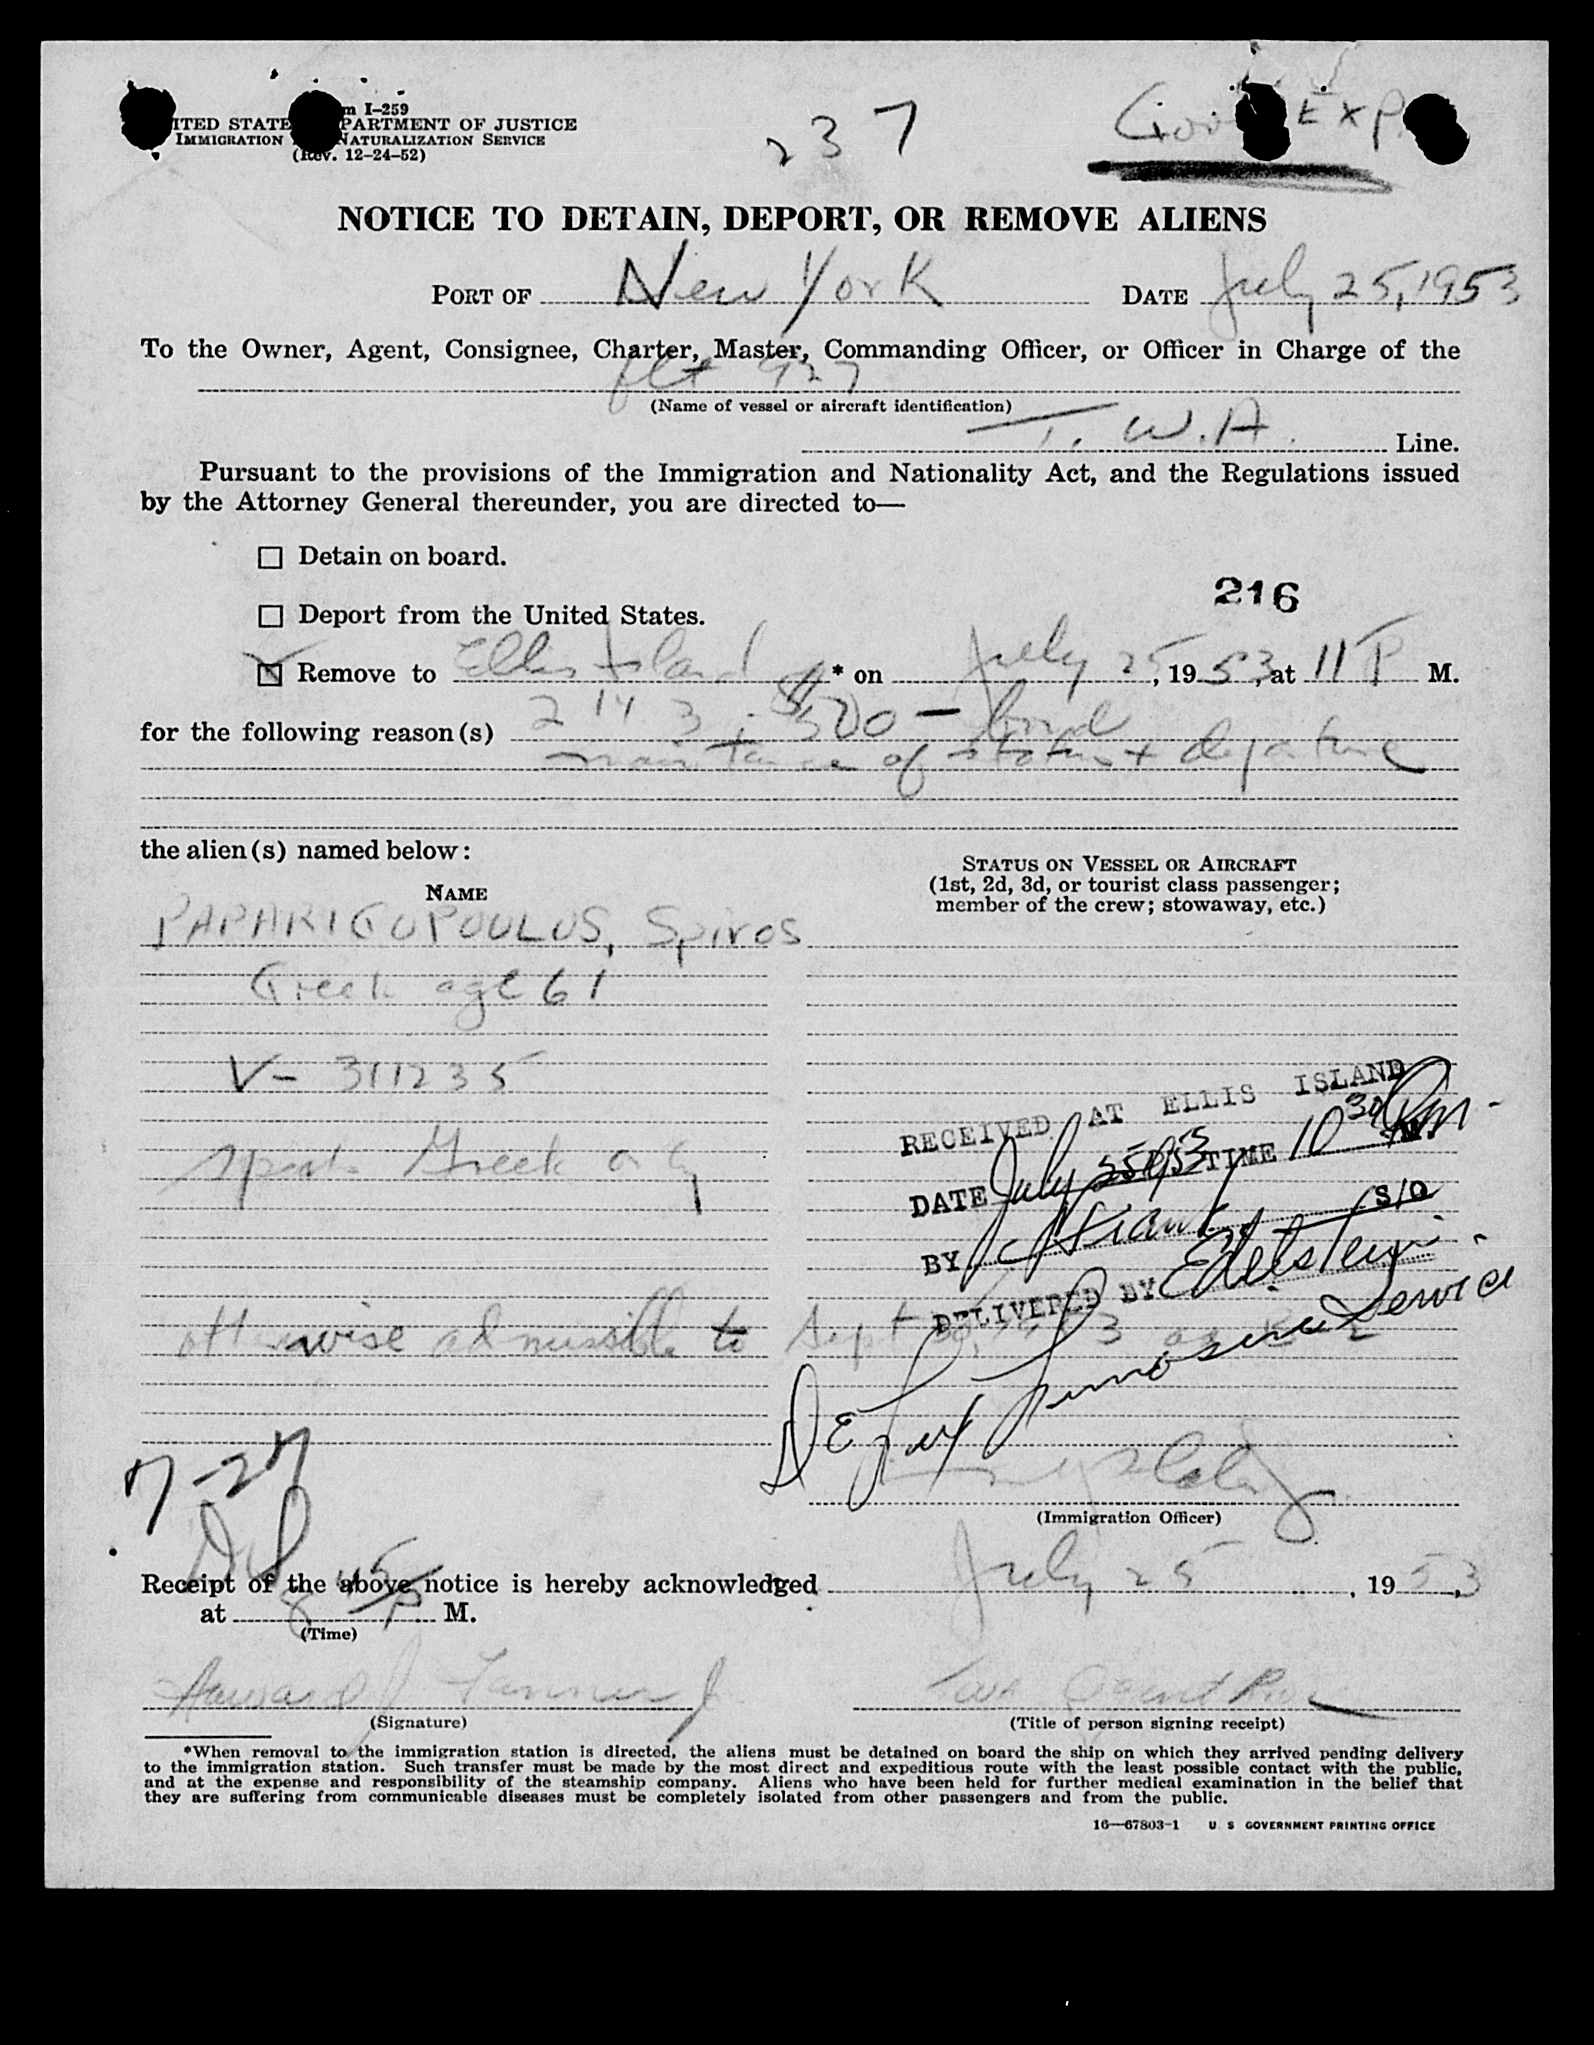 m I-259
ITED STATE PARTMENT OF JUSTICE
IMMIGRATION NATURALIZATION SERVICE
(Rev. 12-24-52)
237
Gov Exp
NOTICE TO DETAIN, DEPORT, OR REMOVE ALIENS
PORT OF New York DATE July 25, 1953
To the Owner, Agent, Consignee, Charter, Master, Commanding Officer, or Officer in Charge of the
flt 927
(Name of vessel or aircraft identification)
T. W. A. Line.
Pursuant to the provisions of the Immigration and Nationality Act, and the Regulations issued
by the Attorney General thereunder, you are directed to—
Detain on board.
216
Deport from the United States.
Remove to Ellis Island * on July 25, 1953, at 11 P M.
for the following reason(s) 214.3 $500 — bond
maintenance of status + departure
the alien(s) named below:
NAME
STATUS ON VESSEL OR AIRCRAFT
(1st, 2d, 3d, or tourist class passenger;
member of the crew; stowaway, etc.)
PAPARIGOPOULOS, Spiros
Greek age 61
V- 311235
RECEIVED AT ELLIS ISLAND
speaks Greek only
DATE July TIME 10 30 Pm
BY S/O
DELIVERED BY Edelstein
otherwise admissible to Sept 1953 as B-2
De Lux Limosine Service
7-27
(Immigration Officer)
Receipt of the above notice is hereby acknowledged July 25, 1953,
at 8 45 P M.
(Time)
Howard J Tanner Jr
Twa Agent
(Signature)
(Title of person signing receipt)
*When removal to the immigration station is directed, the aliens must be detained on board the ship on which they arrived pending delivery
to the immigration station. Such transfer must be made by the most direct and expeditious route with the least possible contact with the public,
and at the expense and responsibility of the steamship company. Aliens who have been held for further medical examination in the belief that
they are suffering from communicable diseases must be completely isolated from other passengers and from the public.
16—67803-1 U S GOVERNMENT PRINTING OFFICE